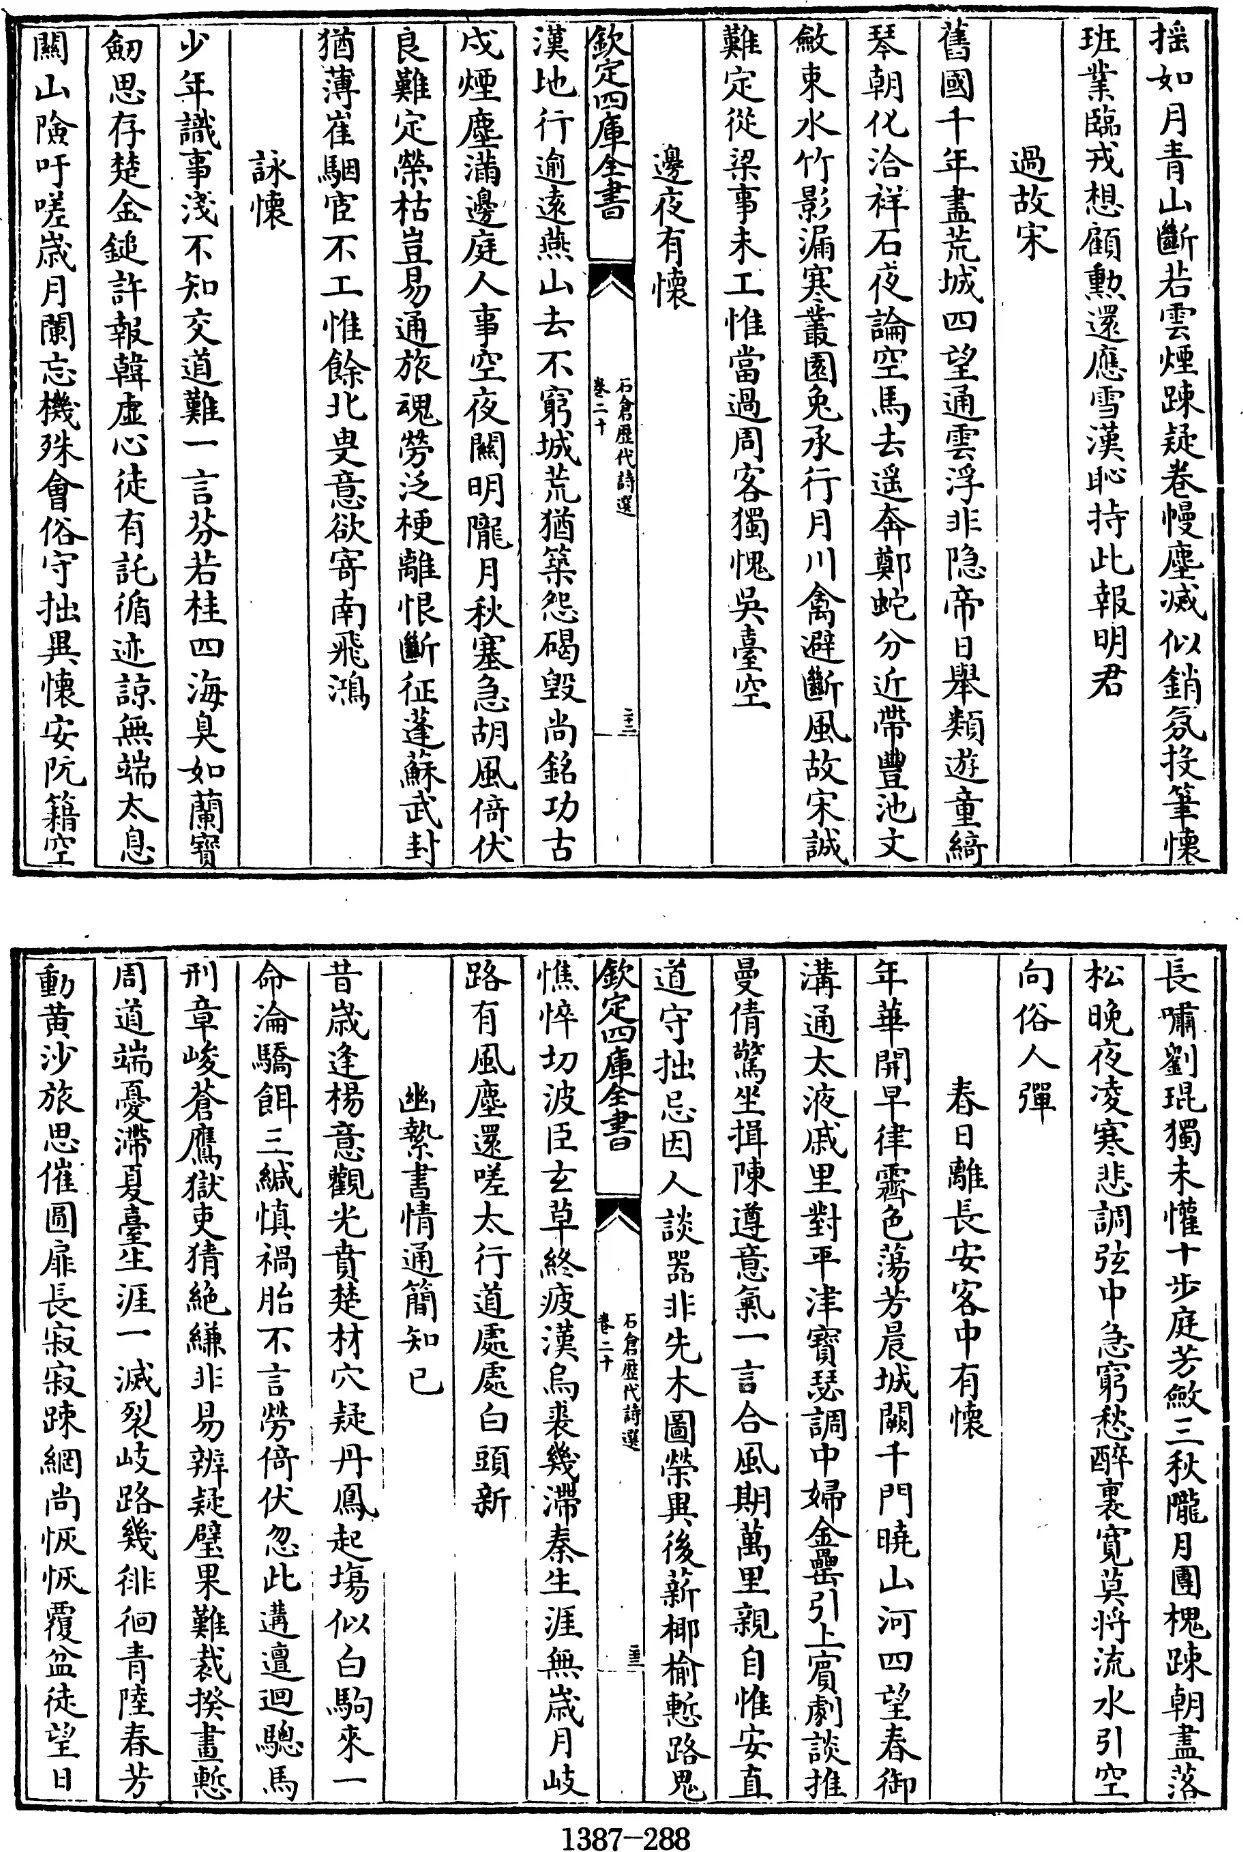 搖如月青山斷若雲煙踈疑卷幔塵滅似銷氛投筆懷
班業臨戎想顧勲還應雪漢恥持此報明君
過故宋
舊國千年盡荒城四望通雲浮非隐帝日舉類遊童綺
琴朝化洽祥石夜論空馬去遥奔鄭蛇分近帶豐池文
斂束水竹影漏寒叢園兔承行月川禽避斷風故宋誠
難定從梁事未工惟當過周客獨愧吳臺空
邊夜有懷
欽定四庫全書
石倉歴代詩選
卷二十
二十二
漢地行逾遠燕山去不窮城荒猶築怨碣毁尚銘功古
戍煙塵滿邊庭人事空夜關明隴月秋塞急胡風倚伏
良難定榮枯豈易通旅魂勞泛梗離恨斷征蓬蘇武封
猶薄崔駰宦不工惟餘北叟意欲寄南飛鴻
詠懷
少年識事淺不知交道難一言芬若桂四海臭如蘭寶
劒思存楚金鎚許報韓虚心徒有託循迹諒無端太息
關山險吁嗟歲月闌忘機殊會俗守拙異懷安阮籍空
長嘯劉琨獨未懽十步庭芳斂三秋隴月團槐踈朝盡落
松晚夜凌寒悲調弦中急窮愁醉裏寛莫將流水引空
向俗人彈
春日離長安客中有懷
年華開早律霽色蕩芳晨城闕千門曉山河四望春御
溝通太液戚里對平津寶瑟調中婦金罍引上賔劇談推
曼倩驚坐揖陳遵意氣一言合風期萬里親自惟安直
道守拙忌因人談器非先木圖榮異後薪揶揄慙路鬼
欽定四庫全書
石倉歴代詩選
卷二十
二十三
憔悴切波臣玄草終疲漢烏裘幾滯秦生涯無歲月岐
路有風塵還嗟太行道處處白頭新
幽縶書情通簡知已
昔歲逢楊意觀光賁楚材穴疑丹鳳起塲似白駒來一
命淪驕餌三緘慎禍胎不言勞倚伏忽此遘邅迴驄馬
刑章峻蒼鷹獄吏猜絶縑非易辨疑璧果難裁揆畫慙
周道端憂滯夏臺生涯一滅裂岐路幾徘徊青陸春芳
動黄沙旅思催圓扉長寂寂踈網尚恢恢覆盆徒望日
1387-288